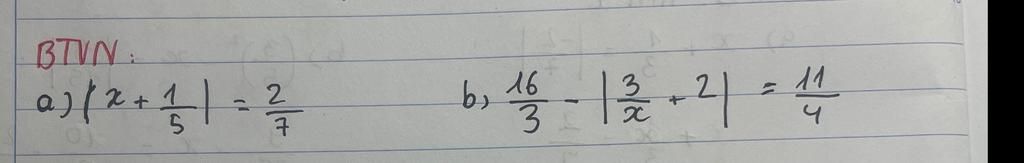 BTVN:
a) |x + 1/5| = 2/7 b, 16/3 - |3/x + 2| = 11/4